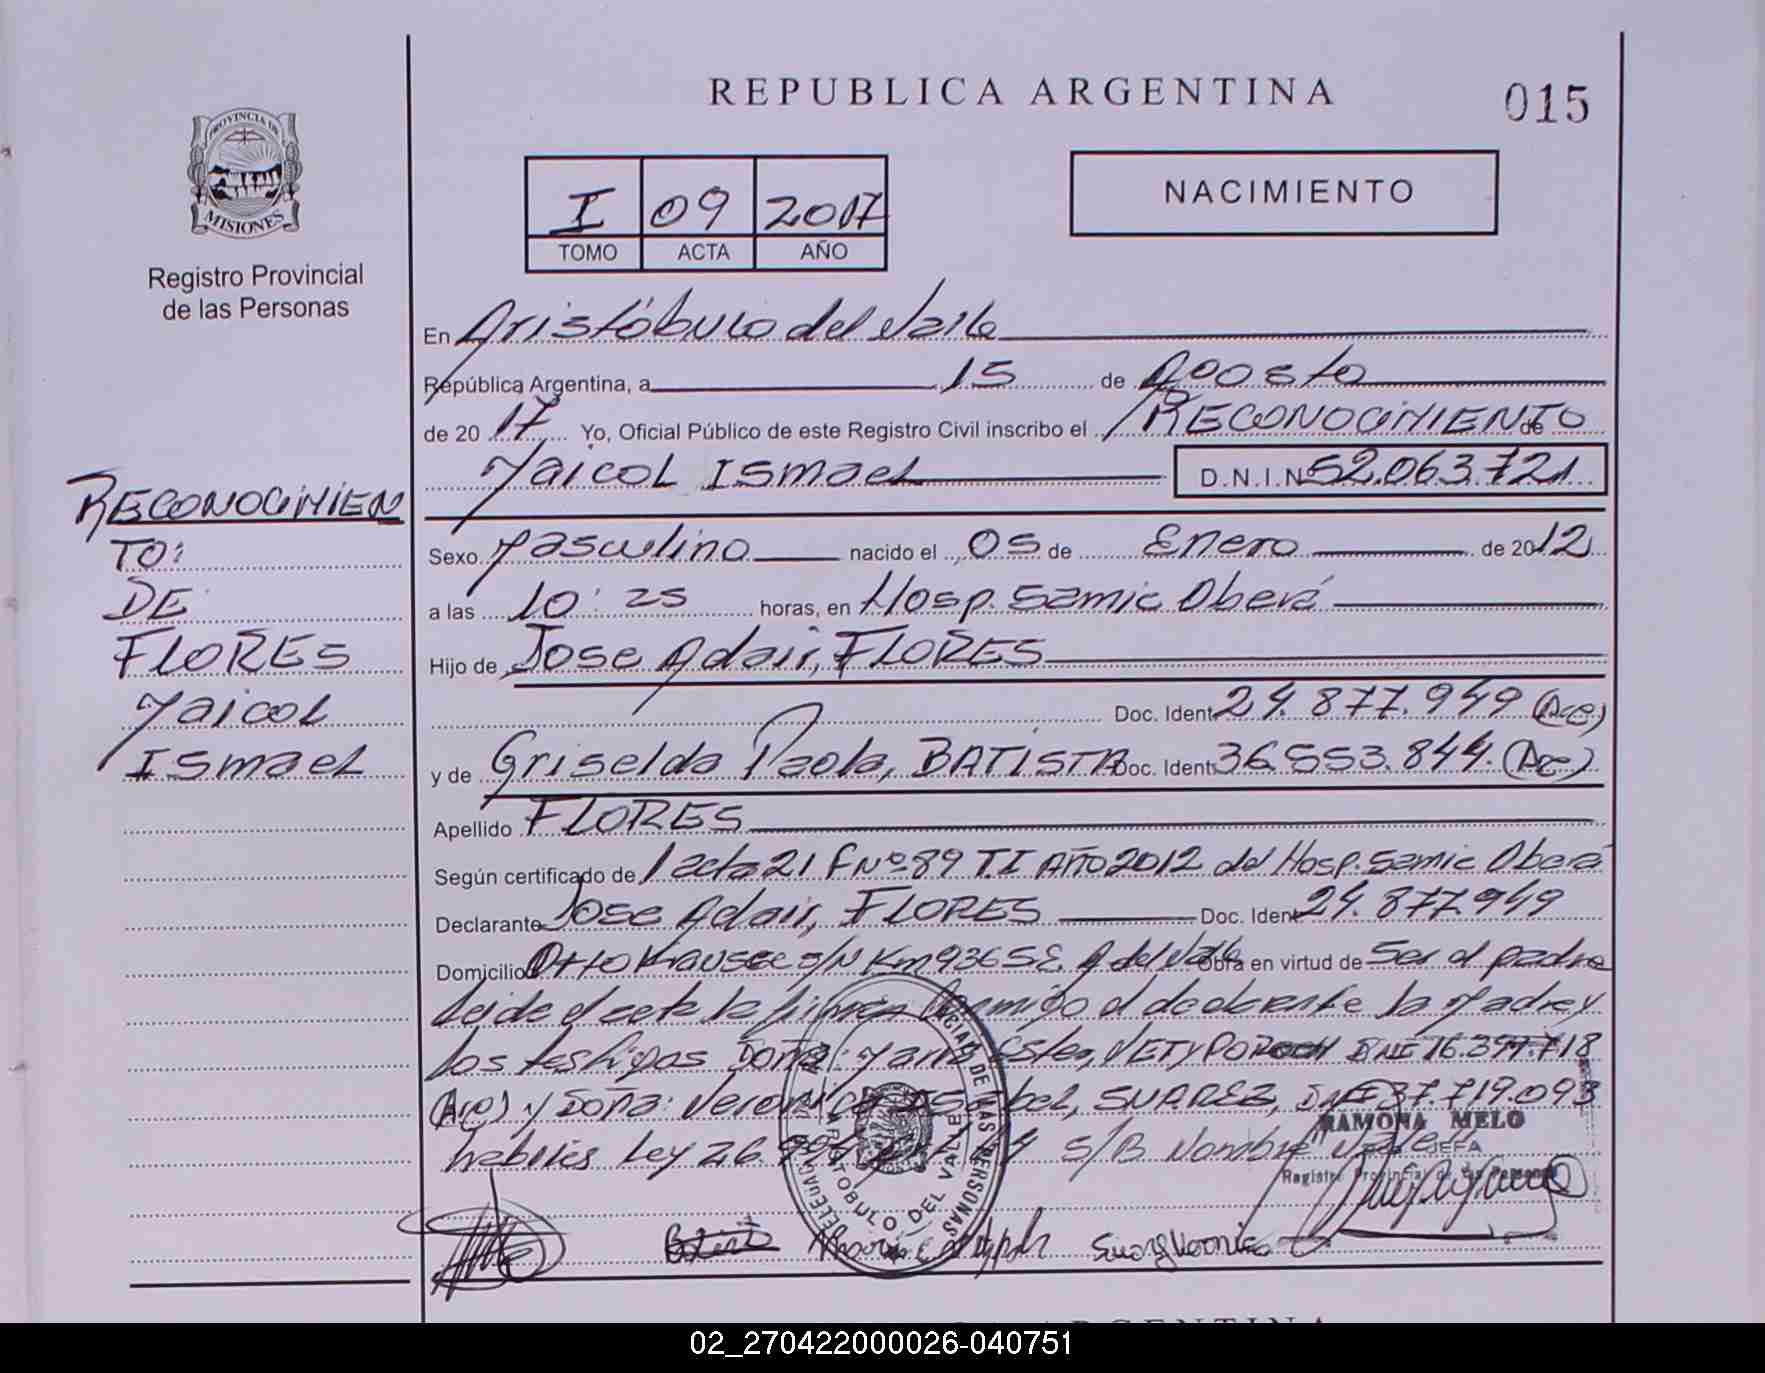 REPUBLICA ARGENTINA
015
PROVINCIA DE
MISIONES
Registro Provincial
de las Personas
I 09 2017
TOMO ACTA AÑO
NACIMIENTO
En Aristóbulo del Valle
República Argentina, a 15 de Agosto
de 2017 Yo, Oficial Público de este Registro Civil inscribo el RECONOCIMIENTO de
Maicol Ismael D.N.I.Nº 52.063.721
RECONOCIMIEN
TO:
DE
FLORES
Maicol
Ismael
Sexo Masculino nacido el 05 de Enero de 2012
a las 10:25 horas, en Hosp. Samic Oberá
Hijo de Jose Adair, FLORES
Doc. Ident. 24.877.949 (Arg)
y de Griselda Paola, BATISTA Doc. Ident. 36.553.844. (Arg)
Apellido FLORES
Según certificado de acta 21 F Nº 89 T.I AÑO 2012 del Hosp. Samic Oberá
Declarante Jose Adair, FLORES Doc. Ident. 24.877.949
Domicilio Otto Krausse s/N Km 936 S.E. A del Valle Obra en virtud de Ser el padre
Leida el acta la firman conmigo el declarante la Madre y
los testigos Doña: Maria Ester, DNI 16.397.718
(Arg) y Doña: Veronica Isabel, SUAREZ, DNI 37.719.093
habiles Ley 26. S/B Nombre Vale
RAMONA MELO
JEFA
Registro Provincial de las Personas
DELEGACION
ARISTOBULO DEL VALLE
DE LAS PERSONAS
Suarez Veronica
ARGENTINA
02_270422000026-040751